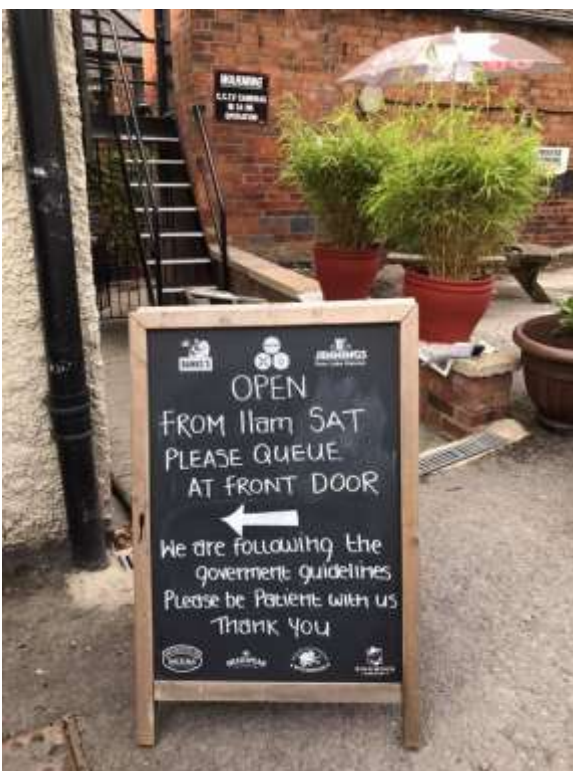 WARNING
C.C.T.V CAMERAS
IN 24 HR
OPERATION
BANKS'S
JENNINGS
OPEN
FROM 11am SAT
PLEASE QUEUE
AT FRONT DOOR
We are following the
goverment guidelines
Please be Patient with us
Thank You
BRAKSPEAR
RINGWOOD